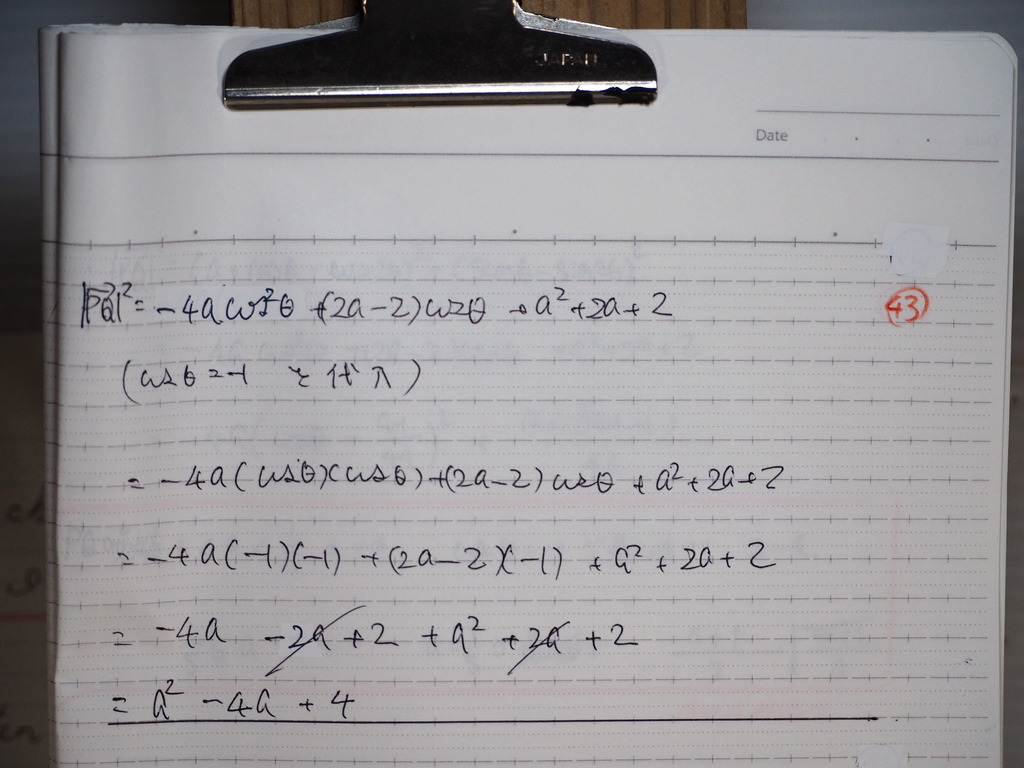 JAPAN
Date
|PQ|² = -4a cos²θ + (2a-2) cosθ + a² + 2a + 2
43
(cosθ = -1 を代入)
= -4a(cosθ)(cosθ) + (2a-2) cosθ + a² + 2a + 2
= -4a(-1)(-1) + (2a-2)(-1) + a² + 2a + 2
= -4a -2a + 2 + a² + 2a + 2
= a² - 4a + 4